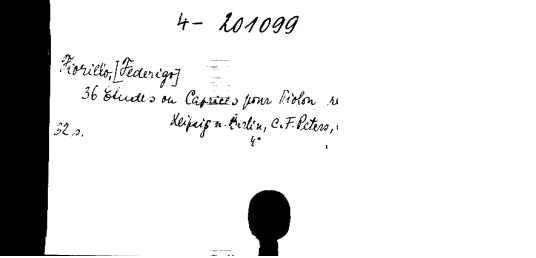 4- 201099
Fiorillo, [Federigo]
36 Études ou Caprices pour Violon
Leipzig u. Berlin, C. F. Peters,
52 s.
4°